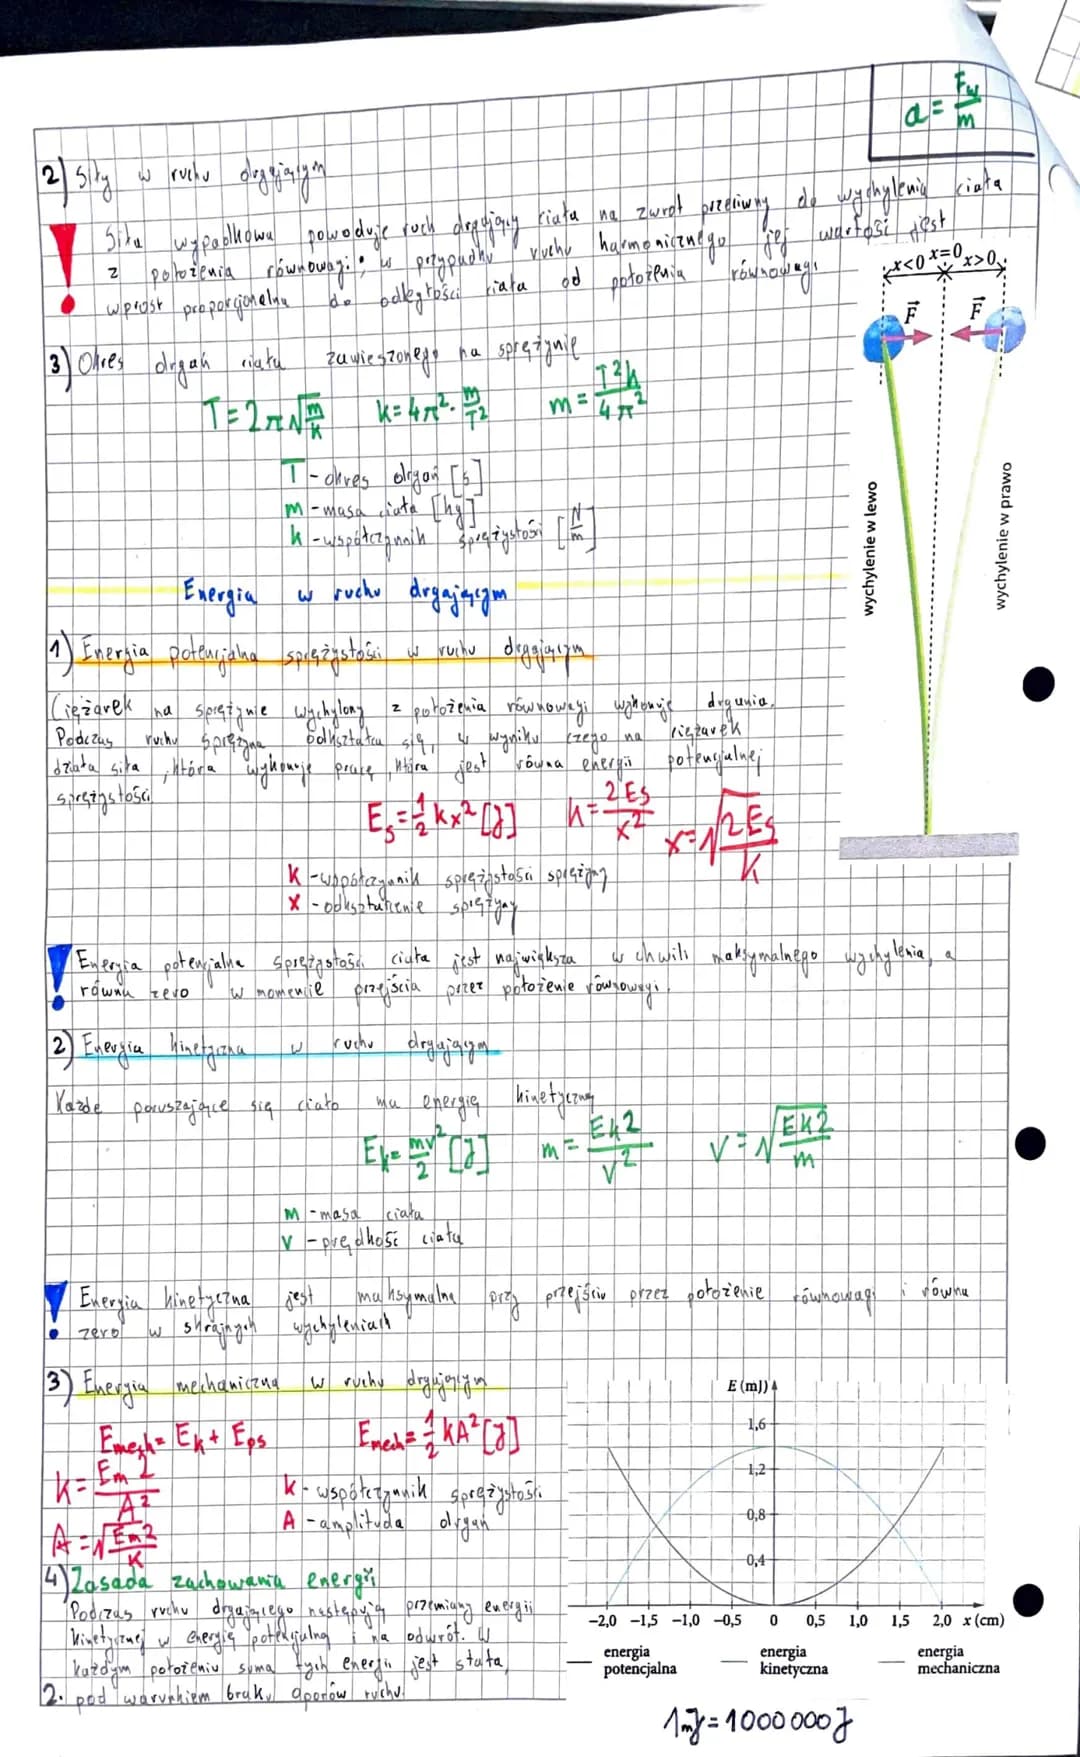 a = Fw/m
2) Siły w ruchu drgającym
! Siła wypadkowa powoduje ruch drgający ciała na zwrot przeciwny do wychylenia ciała
z położenia równowagi; w przypadku ruchu harmonicznego jej wartość jest
wprost proporcjonalna do odległości ciała od położenia równowagi
x<0 x=0 x>0
F F
wychylenie w lewo
wychylenie w prawo
3) Okres drgań ciała zawieszonego na sprężynie
T = 2π√(m/k) k = 4π²·m/T² m = T²k/4π²
T - okres drgań [s]
m - masa ciała [kg]
k - współczynnik sprężystości [N/m]
Energia w ruchu drgającym
1) Energia potencjalna sprężystości w ruchu drgającym
Ciężarek na sprężynie wychylony z położenia równowagi wykonuje drgania.
Podczas ruchu sprężyna odkształca się, w wyniku czego na ciężarek
działa siła, która wykonuje pracę, która jest równa energii potencjalnej
sprężystości
Es = 1/2 kx² [J] k = 2Es/x² x = √(2Es/k)
k - współczynnik sprężystości sprężyny
x - odkształcenie sprężyny
! Energia potencjalna sprężystości ciała jest największa w chwili maksymalnego wychylenia, a
równa zero w momencie przejścia przez położenie równowagi.
2) Energia kinetyczna w ruchu drgającym
Każde poruszające się ciało ma energię kinetyczną
Ek = mv²/2 [J] m = Ek2/v² v = √(Ek2/m)
m - masa ciała
v - prędkość ciała
! Energia kinetyczna jest maksymalna przy przejściu przez położenie równowagi i równa
zero w skrajnych wychyleniach
3) Energia mechaniczna w ruchu drgającym
Emech = Ek + Eps Emech = 1/2 kA² [J]
k = Em2/A²
A = √(Em2/k)
k - współczynnik sprężystości
A - amplituda drgań
4) Zasada zachowania energii
Podczas ruchu drgającego następują przemiany energii
kinetycznej w energię potencjalną i na odwrót. W
każdym położeniu suma tych energii jest stała,
2. pod warunkiem braku oporów ruchu.
E (mJ)
1,6
1,2
0,8
0,4
−2,0 −1,5 −1,0 −0,5 0 0,5 1,0 1,5 2,0 x (cm)
energia potencjalna
energia kinetyczna
energia mechaniczna
1mJ = 1000 000J